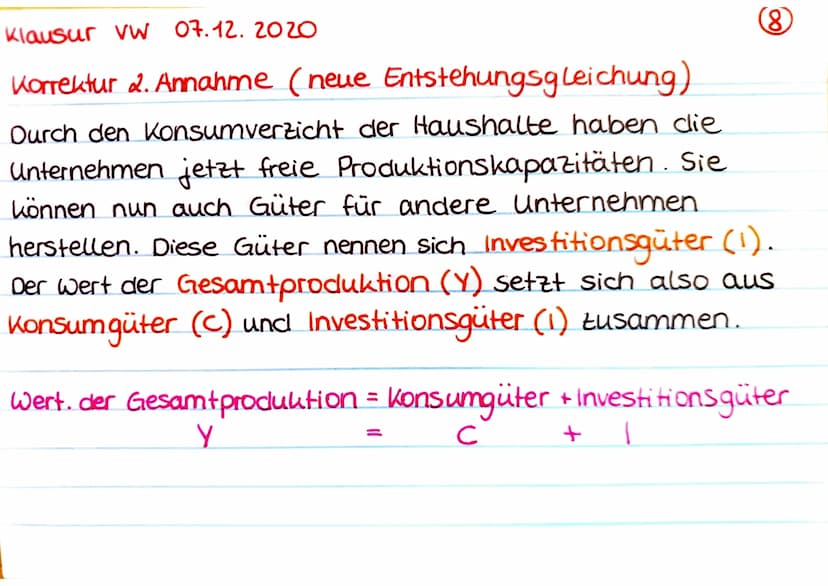 Klausur VW 07.12.2020 8
Korrektur 2. Annahme (neue Entstehungsgleichung)
Durch den Konsumverzicht der Haushalte haben die
Unternehmen jetzt freie Produktionskapazitäten. Sie
können nun auch Güter für andere Unternehmen
herstellen. Diese Güter nennen sich Investitionsgüter (I).
Der Wert der Gesamtproduktion (Y) setzt sich also aus
Konsumgüter (C) und Investitionsgüter (I) zusammen.
Wert. der Gesamtproduktion = Konsumgüter + Investitionsgüter
Y = C + I